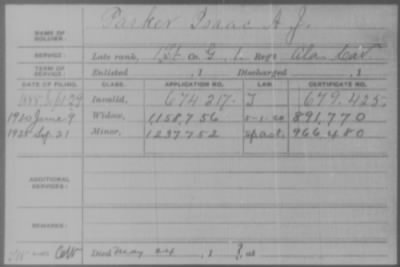 NAME OF SOLDIER: Parker Isaac A J.
SERVICE: Late rank, Pvt Co. G, 1 Reg't Ala Cav
TERM OF SERVICE: Enlisted , 1 Discharged , 1
DATE OF FILING. CLASS. APPLICATION NO. LAW CERTIFICATE NO.
Invalid, 674217. J 679.425
1920 June 9 Widow, 1,158,756 5-1-20 891,770
1925 Sep. 21 Minor, 1237752 966,480
ADDITIONAL SERVICES:
REMARKS:
Died May 24 , 1 , at